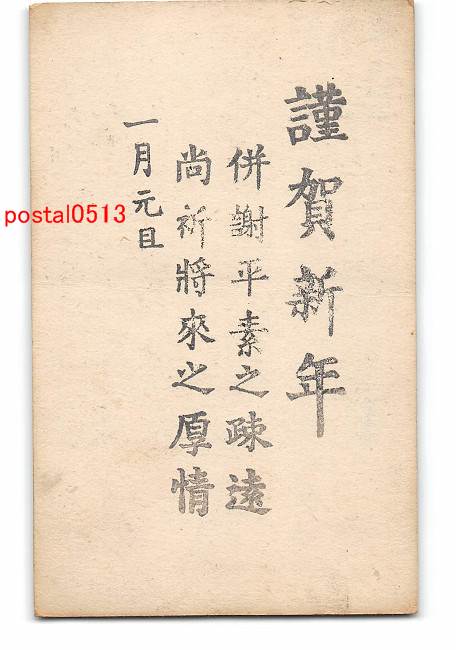 謹賀新年
併謝平素之疎遠
尚祈將來之厚情
一月元旦
postal0513